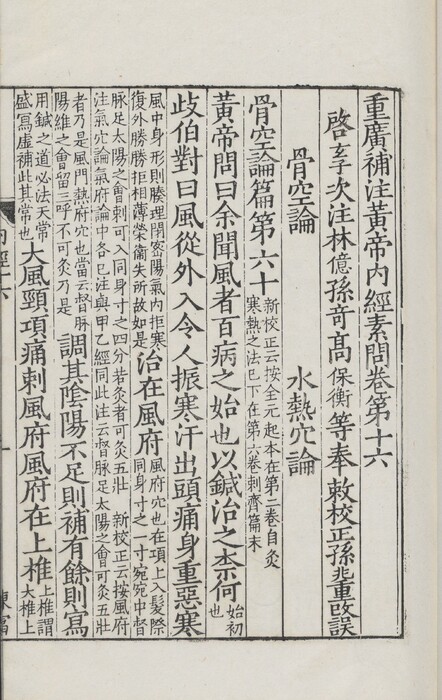 重廣補注黃帝內經素問卷第十六
啓玄子次注林億孫奇高保衡等奉敕校正孫兆重改誤
骨空論　水熱穴論
骨空論篇第六十 新校正云按全元起本在第二卷自灸
寒熱之法已下在第六卷刺齊篇末
黃帝問曰余聞風者百病之始也以鍼治之柰何 始初
也
歧伯對曰風從外入令人振寒汗出頭痛身重惡寒
風中身形則腠理閉密陽氣內拒寒
復外勝勝拒相薄榮衞失所故如是 治在風府 風府穴也在項上入髮際
同身寸之一寸宛宛中督
脉足太陽之會刺可入同身寸之四分若灸者可灸五壯 新校正云按風府
注氣穴論氣府論中各已注與甲乙經同此注云督脉足太陽之會可灸五壯
者乃是風門熱府穴也當云督脉
陽維之會留三呼不可灸乃是 調其陰陽不足則補有餘則寫
用鍼之道必法天常
盛寫虛補此其常也 大風頸項痛刺風府風府在上椎 上椎謂
大椎上